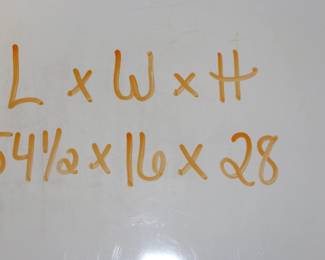 L x W x H
54 1/2 x 16 x 28